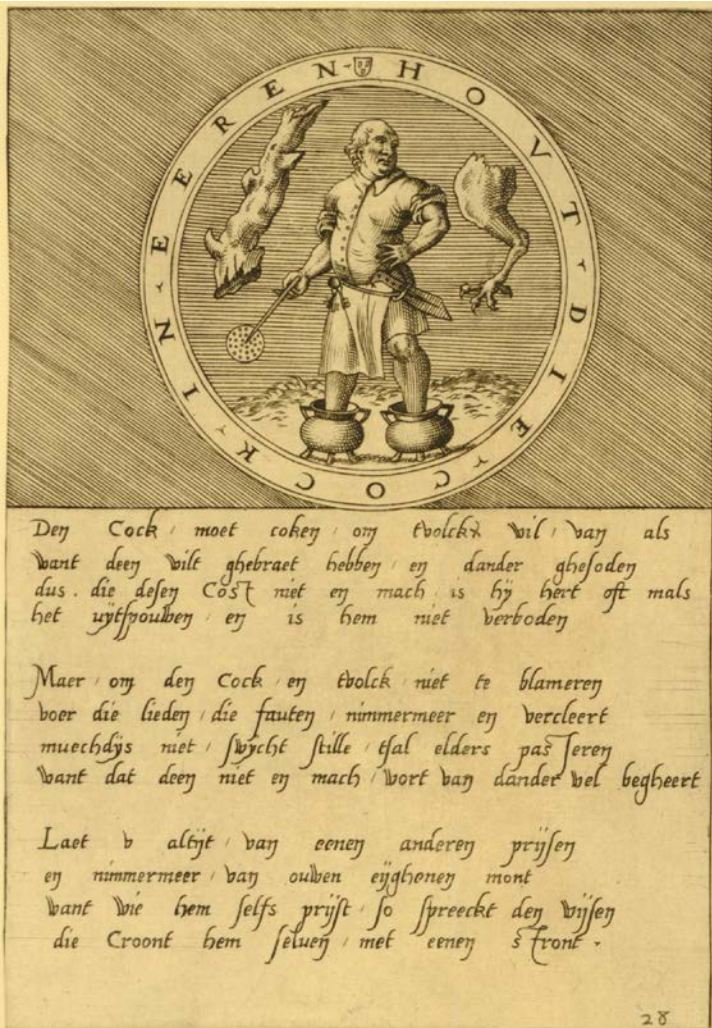 HOVT DIE COCK IN EEREN
Den Cock / moet coken / om tvolckx wil / van als
want deen wilt ghebraet hebben / en dander ghesoden
dus . die desen Cost niet en mach . is hy hert oft mals
het uÿtspouwen / en is hem niet verboden
Maer / om den Cock / en tvolck / niet te blameren
voer die lieden / die fauten / nimmermeer en vercleert
muechdÿs niet / swÿcht stille / tsal elders pas seren
want dat deen niet en mach / wort van dander wel begheert
Laet v altÿt / van eenen anderen prÿsen
en nimmermeer / van ouwen eÿghenen mont
want wie hem selfs prÿst / so spreeckt den wÿsen
die Croont hem seluen / met eenen stront .
28